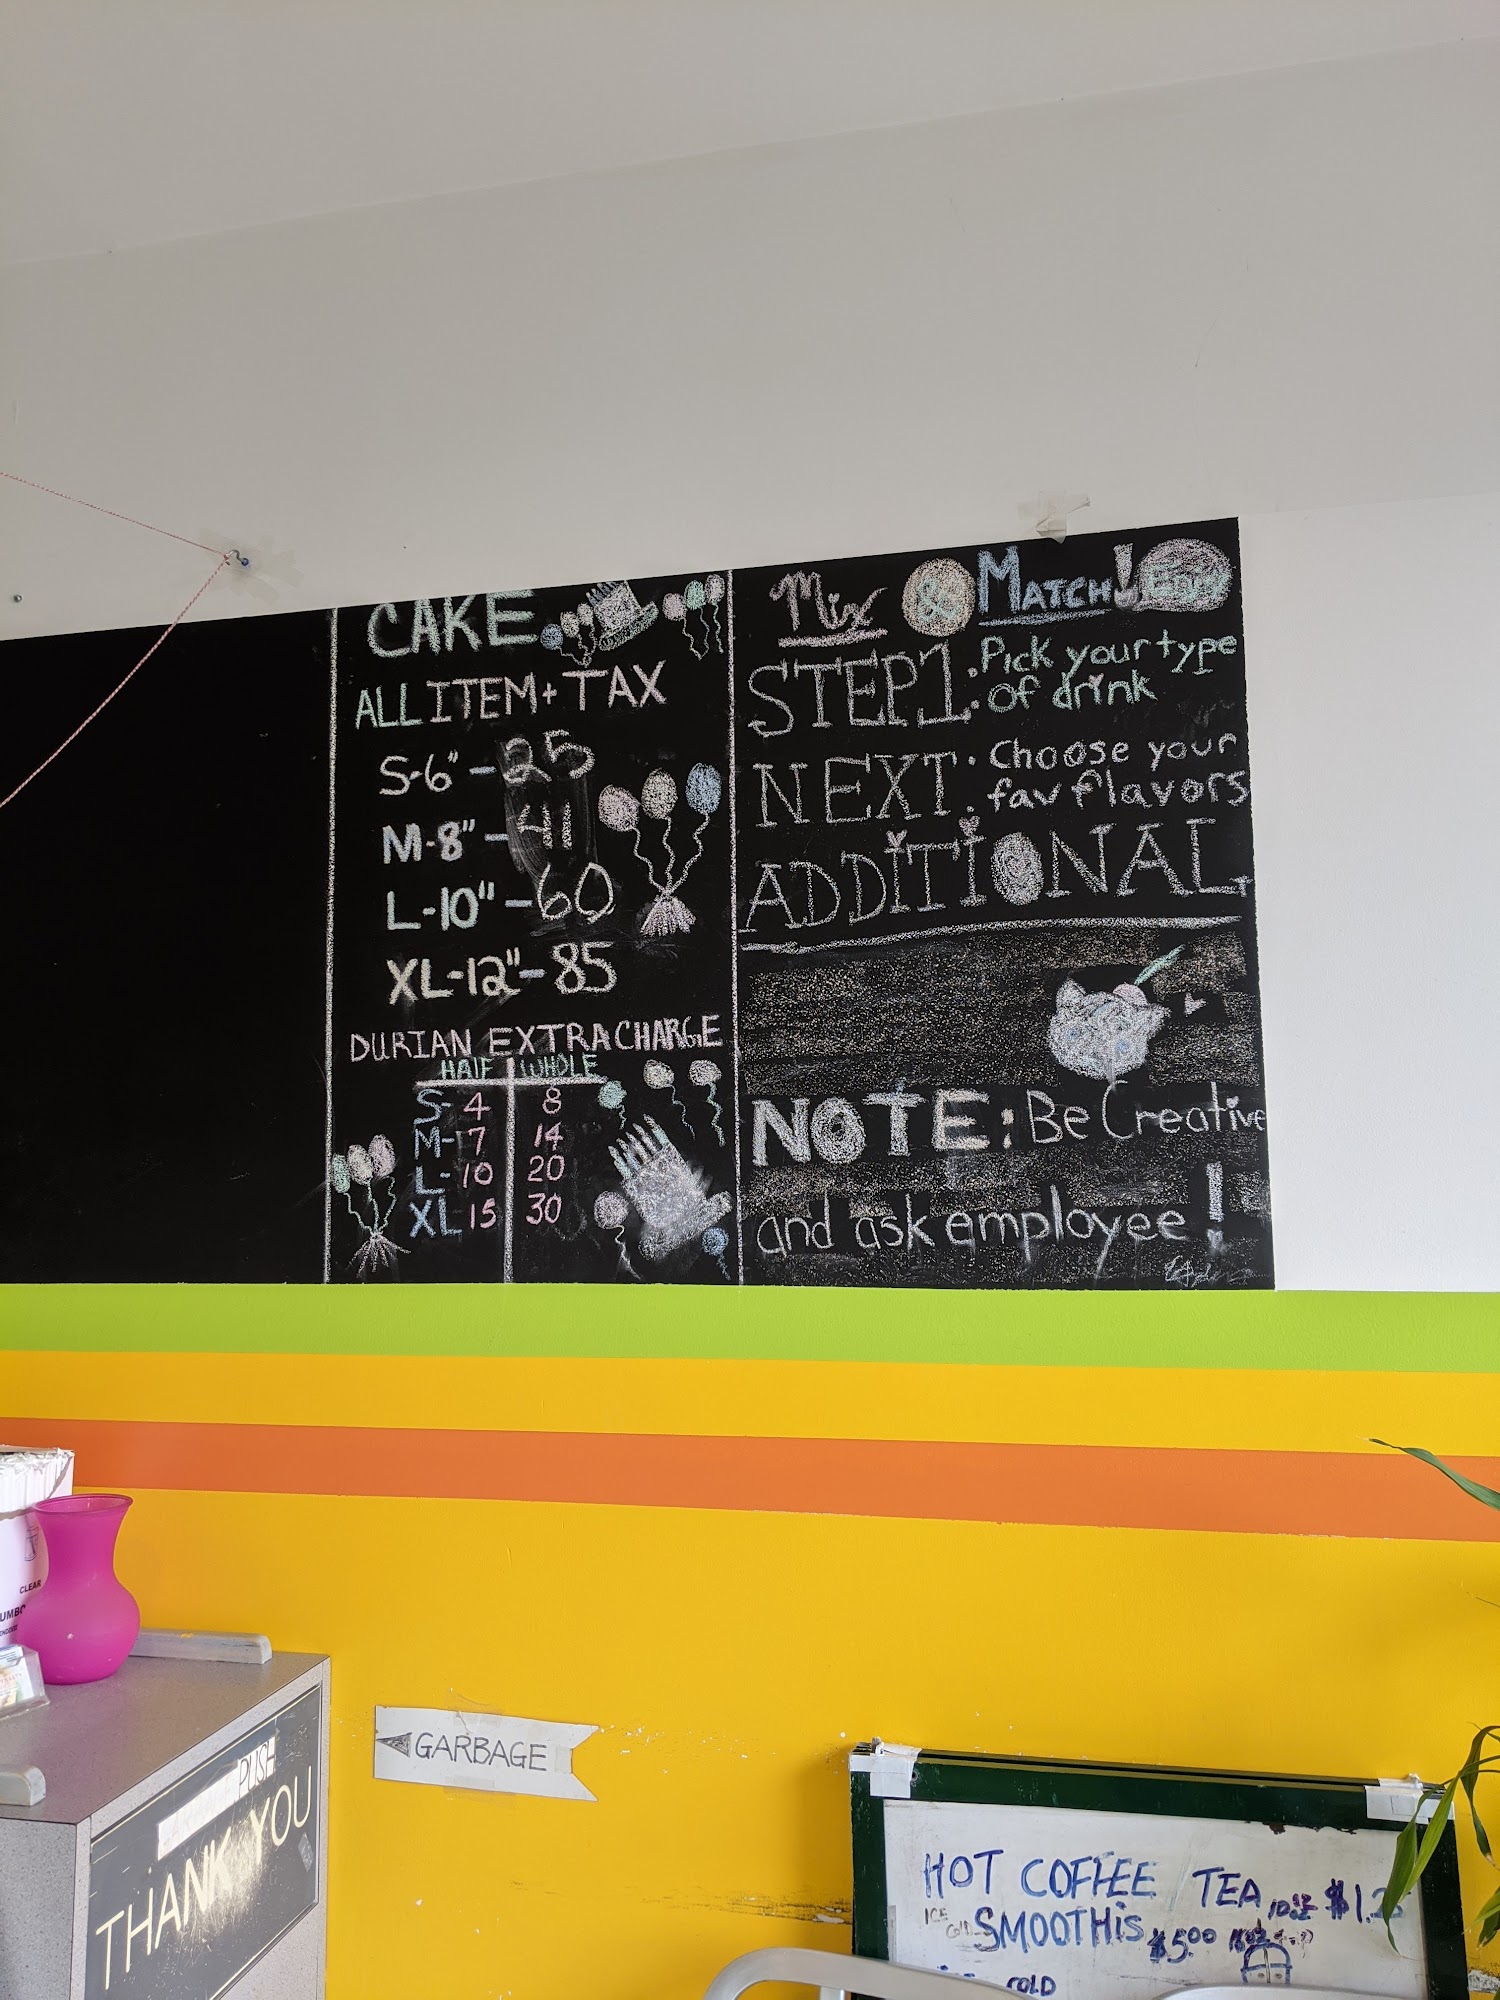 CAKE
ALL ITEM + TAX
S-6"-25
M-8"-41
L-10"-60
XL-12"-85
DURIAN EXTRA CHARGE
HALF WHOLE
S- 4 8
M- 7 14
L- 10 20
XL 15 30
Mix & MATCH!
STEP1: Pick your type
of drink
NEXT: Choose your
fav flavors
ADDITIONAL
NOTE: Be Creative
and ask employee!
CLEAR
PUSH
THANK YOU
GARBAGE
HOT COFFEE TEA 10oz
ICE SMOOTHiS $5.00
COLD